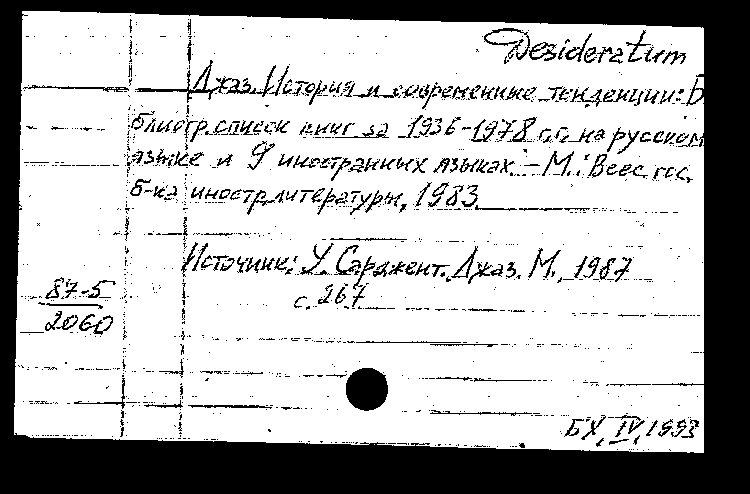 Desideratum
Джаз. История и современные тенденции: Б
блиогр. список книг за 1936-1978 г.г. на русском
языке и 9 иностранных языках. - М.: Всес. гос.
б-ка иностр. литературы, 1983.
Источник: У. Сарджент. Джаз. М., 1987
с. 267
87-5
2060
БХ, IV, 1993